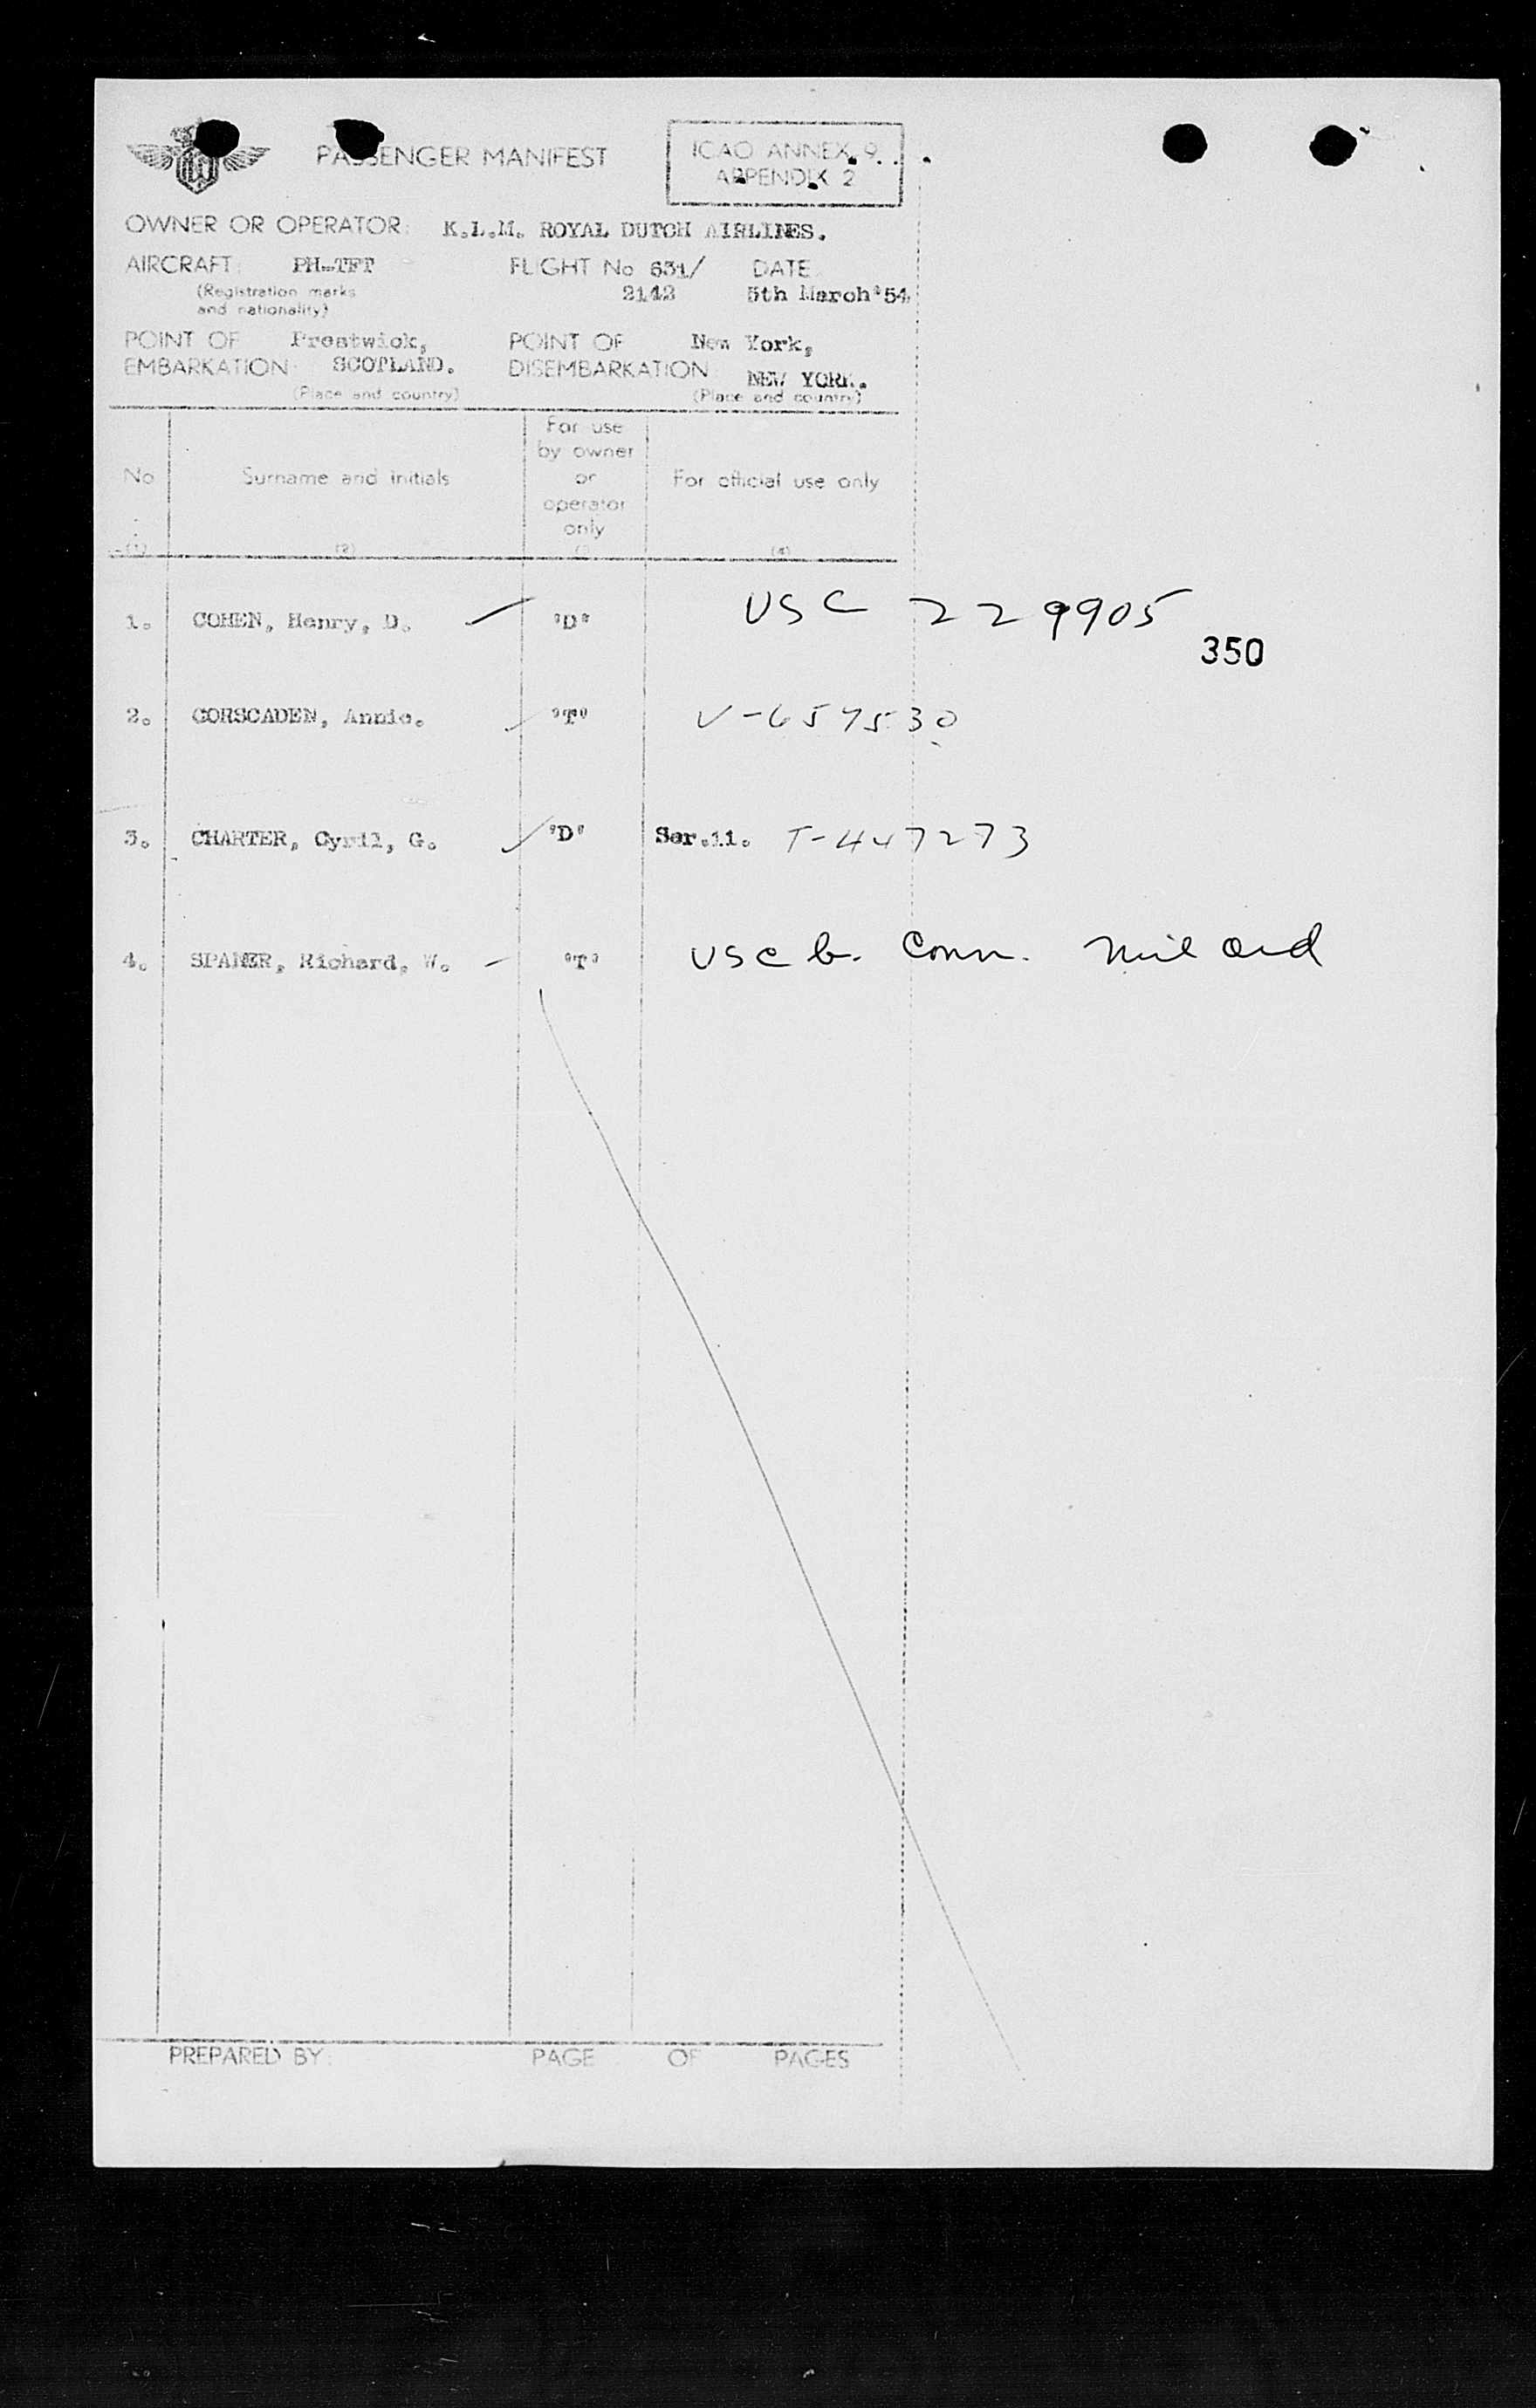 PASSENGER MANIFEST
ICAO ANNEX 9
APPENDIX 2
OWNER OR OPERATOR: K.L.M. ROYAL DUTCH AIRLINES.
AIRCRAFT: PH-TFT FLIGHT No 631/ DATE
(Registration marks and nationality) 2142 5th March'54
POINT OF Prestwick, POINT OF New York,
EMBARKATION: SCOTLAND. DISEMBARKATION NEW YORK.
(Place and country) (Place and country)
No Surname and initials For use by owner or operator only For official use only
(1) (2) (4)
1. COHEN, Henry, D. "D" USC 229905
350
2. CORSCADEN, Annie. "T" V-657530
3. CHARTER, Cyril, G. "D" Ser.11. T-447273
4. SPANER, Richard, W. "T" USC b. Conn. Mil Ord
PREPARED BY: PAGE OF PAGES